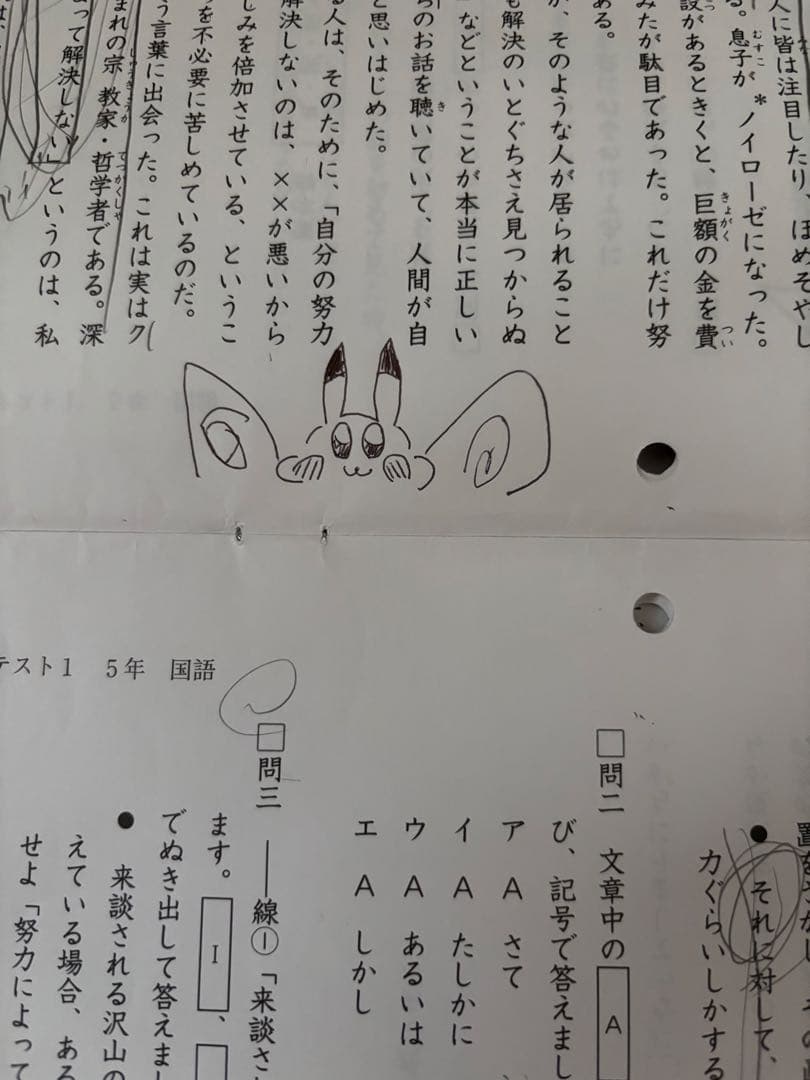 人に皆は注目したり、ほめそやし
る。息子が＊ノイローゼになった。
設があるときくと、巨額の金を費
みたが駄目であった。これだけ努
ある。
が、そのような人が居られること
も解決のいとぐちさえ見つからぬ
などということが本当に正しい
ちのお話を聴いていて、人間が自
と思いはじめた。
る人は、そのために、「自分の努力
解決しないのは、××が悪いから
しみを倍加させている、というこ
を不必要に苦しめているのだ。
う言葉に出会った。これは実はク
まれの宗教家・哲学者である。深
って解決しない」というのは、私
テスト１ 5年 国語
それに対して、
力ぐらいしかする
□問二 文章中の A
び、記号で答えまし
ア A さて
イ A たしかに
ウ A あるいは
エ A しかし
□問三 ――線①「来談さ
ます。 I 、
でぬき出して答えまし
● 来談される沢山の
えている場合、ある
せよ「努力によって